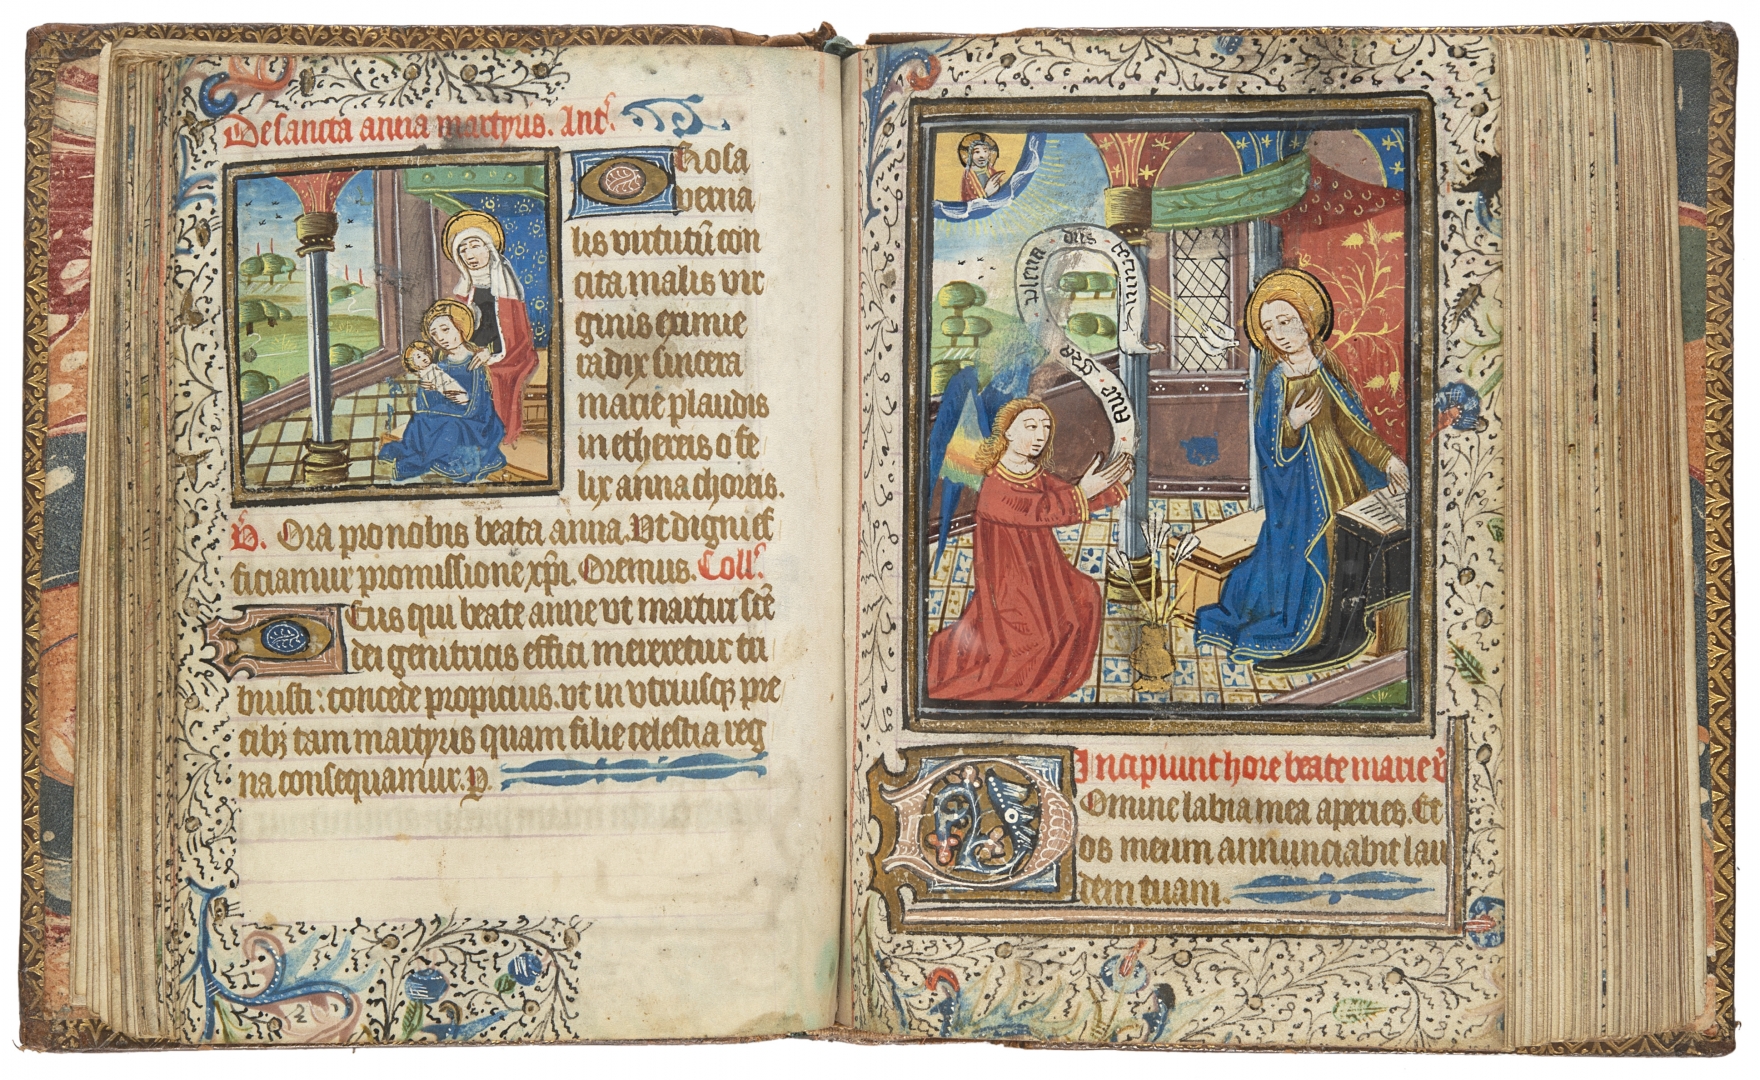 De sancta anna martyris. Ant᷑.
Rosa
verna
lis virtutū con
cita malis vir
ginis eximie
radix sincera
marie plaudis
in ethereis o fe
lix anna choreis.
V. Ora pro nobis beata anna. Vt digni ef
ficiamur promissione xp̄i. Oremus. Coll᷑.
Deus qui beate anne vt martir sctē
dei genitricis effici mereretur tri
buisti: concede propicius. vt in vtriusqȝ pre
cibȝ tam martyris quam filie celestia reg
na consequamur. P.
Aue gra plena dn̄s tecum
Incipiunt hore beate marie v̄
Domine labia mea aperies. Et
os meum annunciabit lau
dem tuam.